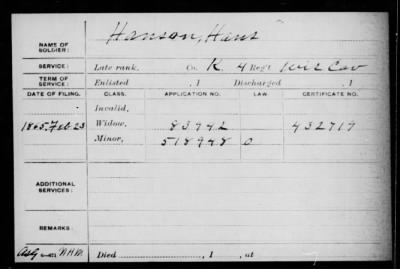 Hanson, Hans
NAME OF
SOLDIER:
SERVICE: Late rank, Co. K, 4 Reg't Wis Cav
TERM OF
SERVICE: Enlisted , 1 Discharged , 1
DATE OF FILING. CLASS. APPLICATION NO. LAW. CERTIFICATE NO.
Invalid,
1865 Feb 23 Widow, 83942 432719
Minor, 518948 0
ADDITIONAL
SERVICES:
REMARKS:
Died , 1 , at